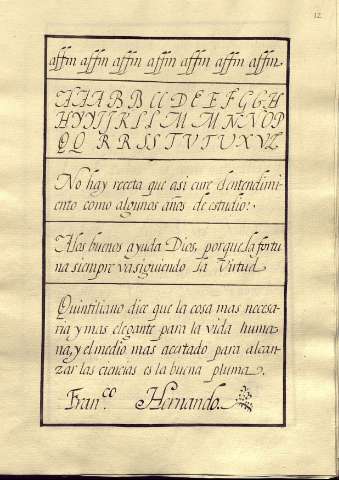 12
affin affin affin affin affin affin affin
A A A B B C C D E E F G G H
H Y Y Y J K L L M M N N O P
Q Q R R S S T V T V X Y Z
No hay receta que asi cure el entendimi-
ento como algunos años de estudio:
A los buenos ayuda Dios, porque la fortu
na siempre va siguiendo la Virtud
Quintiliano dice que la cosa mas necesa-
ria y mas elegante para la vida huma
na, y el medio mas acertado para alcan-
zar las ciencias es la buena pluma.
Fran.co Hernando.